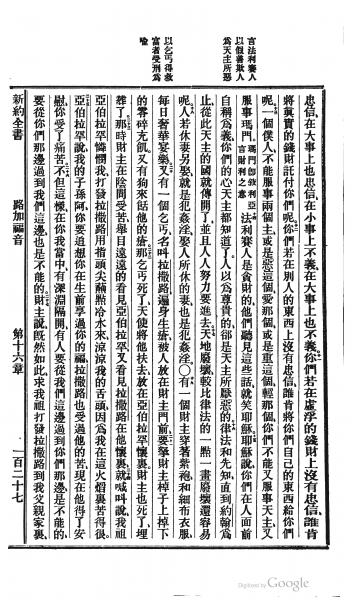 言法利賽人
以假善欺人
爲天主所惡
以乞丐得救
富者受刑爲
喻
忠信在大事上也忠信在小事上不義在大事上也不義你們若在虛浮的錢財上沒有忠信誰肯
將眞實的錢財託付你們呢你們若在別人的東西上沒有忠信誰肯將你們自己的東西給你們
呢一個僕人不能服事兩個主或是惡這個愛那個或是重這個輕那個你們不能又服事天主又
服事瑪門瑪門卽敘利亞言財利之意法利賽人是貪財的他們聽見這些話就笑耶穌耶穌說你們在人面前
自稱爲義你們的心天主都知道了人以爲尊貴的卻是天主所厭惡的律法和先知直到約翰爲
止從此天主的國就傳開了並且人人努力要進去天地廢壞較比律法的一點一畫廢壞還容易
呢人若休妻另娶就是犯姦淫娶人所休的妻也是犯姦淫○有一個財主穿著紫袍和細布衣服
每日奢華宴樂又有一個乞丐名叫拉撒路遍身生瘡被人放在財主門前要拏財主棹子上掉下
的零碎充飢又有狗來餂他的瘡那乞丐死了天使將他扶去放在亞伯拉罕懷裏財主也死了埋
葬了那時財主在陰間受苦舉目遠遠的看見亞伯拉罕又看見拉撒路在他懷裏就喊叫說我祖
亞伯拉罕憐憫我打發拉撒路用指頭尖蘸點冷水來涼涼我的舌頭因爲我在這火熖裏苦得很
亞伯拉罕說我的子孫阿你要追想你在生前享過你的福拉撒路也受過他的苦現在他得了安
慰你受了痛苦不但這樣在你我當中有深淵隔開有人要從我們這邊過到你們那邊是不能的
要從你們那邊過到我們這邊也是不能的財主說旣然如此求我祖打發拉撒路到我父親家裏
新約全書 路加福音 第十六章 一百二十七
Digitized by Google